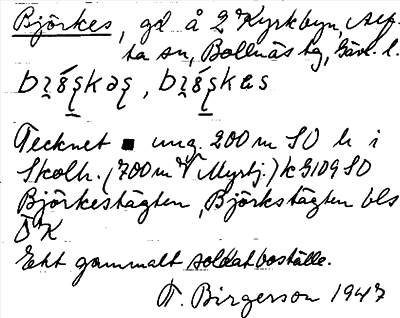 Björkes, gd å 2 Kyrkbyn, Arp-
ta sn, Bollnäs tg, Gävl. l.
Tecknet ■ ung. 200 m SO h i
Skolh. (700 m V Myrtj.) k G109 SO
Björkestägten, Björkstägten bls
Ö K
Ett gammalt soldatboställe.
T. Birgerson 1947